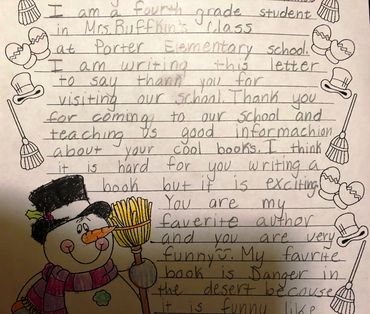 I am a fourth grade student
in Mrs. Ruffkin's class
at Porter Elementary school.
I am writing this letter
to say thank you for
visiting our school. Thank you
for coming to our school and
teaching us good informachion
about your cool books. I think
it is hard for you writing a
book but it is exciting.
You are my
faverite author
and you are very
funny. My favrite
book is Danger in
the desert because
it is funny like